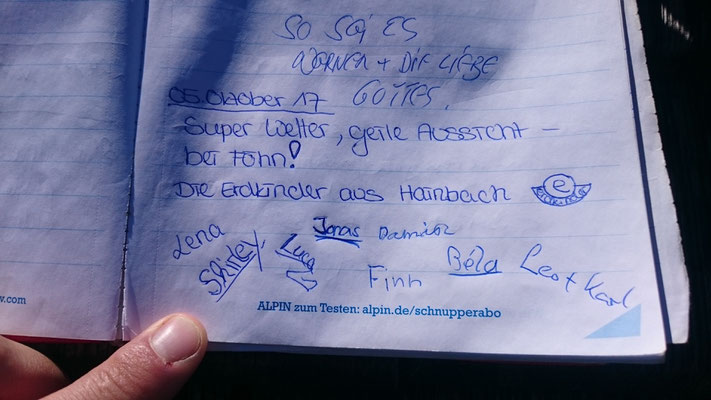 SO SEI ES
WERNER + DIE LIEBE
GOTTES.
05. Oktober 17
Super Wetter, geile AUSSICHT –
bei Föhn!
Die Erdkinder aus Hainbach
e
Lena
Shirley,
Luca
Jonas
Damian
Finn
Béla
Leo + Karl
w.com
ALPIN zum Testen: alpin.de/schnupperabo